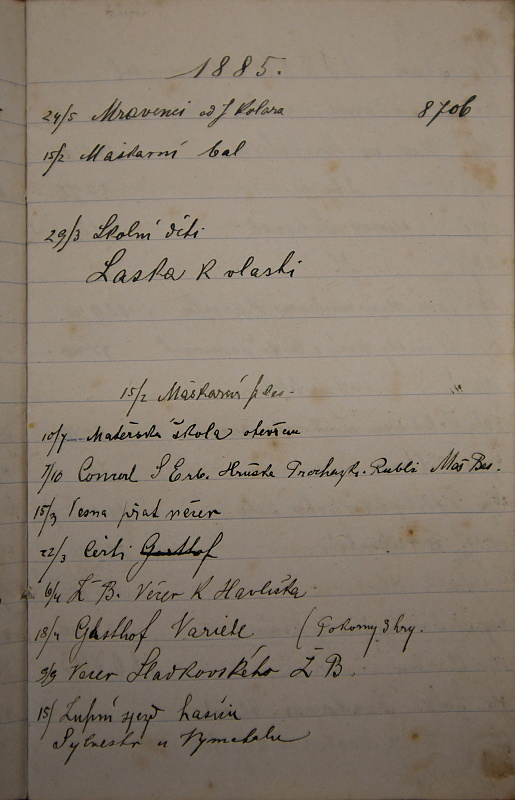 1885.
24/5 Mravenci od J Kolara 8706
15/2 Maškarní bal
29/3 Školní děti
Laska k vlasti
15/2 Maškarní ples.
10/7 Mateřska škola otevřena
7/10 Concert S Erb. Hruška Prochazk. Rubli
15/3 Vesna přat večer
22/3 Čerti Gasthof
6/4 Ž B. Večer K Havlička
18/4 Gasthof Variete ( Pokorny 3 hry.
9/9 Vecer Sladkovského Ž B.
15/ Župní sjezd hasičů
Sylvestr u Vymetala